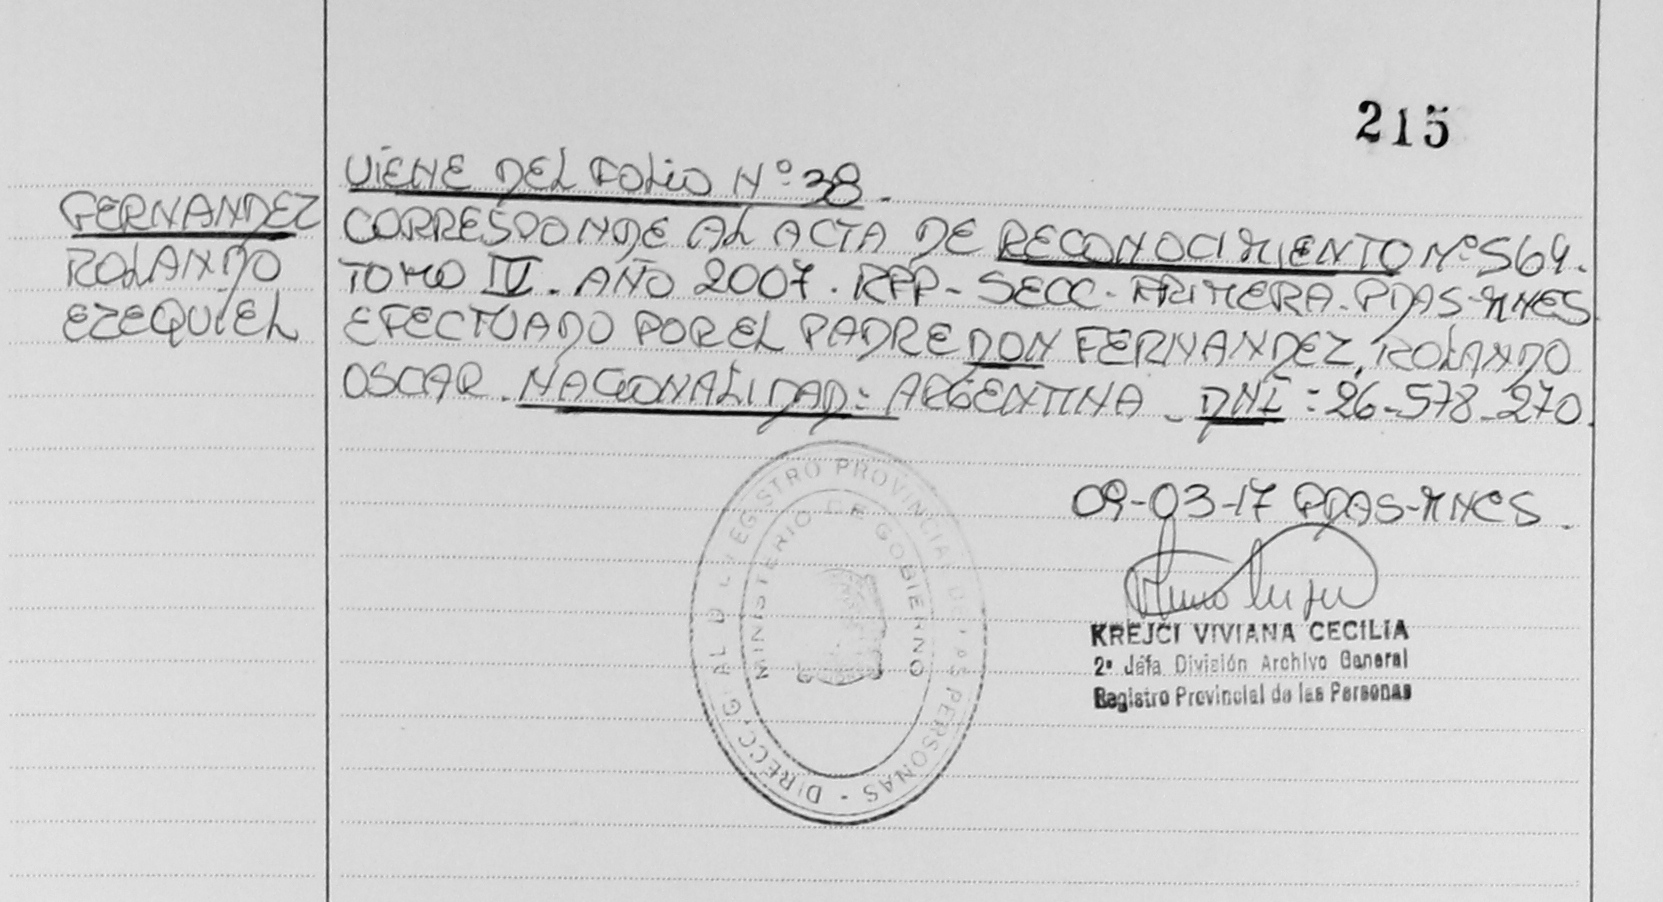 215
VIENE DEL FOLIO Nº 38.
FERNANDEZ
ROLANDO
EZEQUIEL
CORRESPONDE AL ACTA DE RECONOCIMIENTO Nº 564.
TOMO IV. AÑO 2007. RPP- SECC- PRIMERA. PDAS-MNES
EFECTUADO POR EL PADRE DON FERNANDEZ, ROLANDO
OSCAR. NACIONALIDAD: ARGENTINA - DNI: 26-578-270.
09-03-17 PDAS-MNES.
KREJCI VIVIANA CECILIA
2ª Jefa División Archivo General
Registro Provincial de las Personas
REGISTRO PROVINCIAL DE LAS PERSONAS - DIRECC. GRAL DEL
MINISTERIO DE GOBIERNO